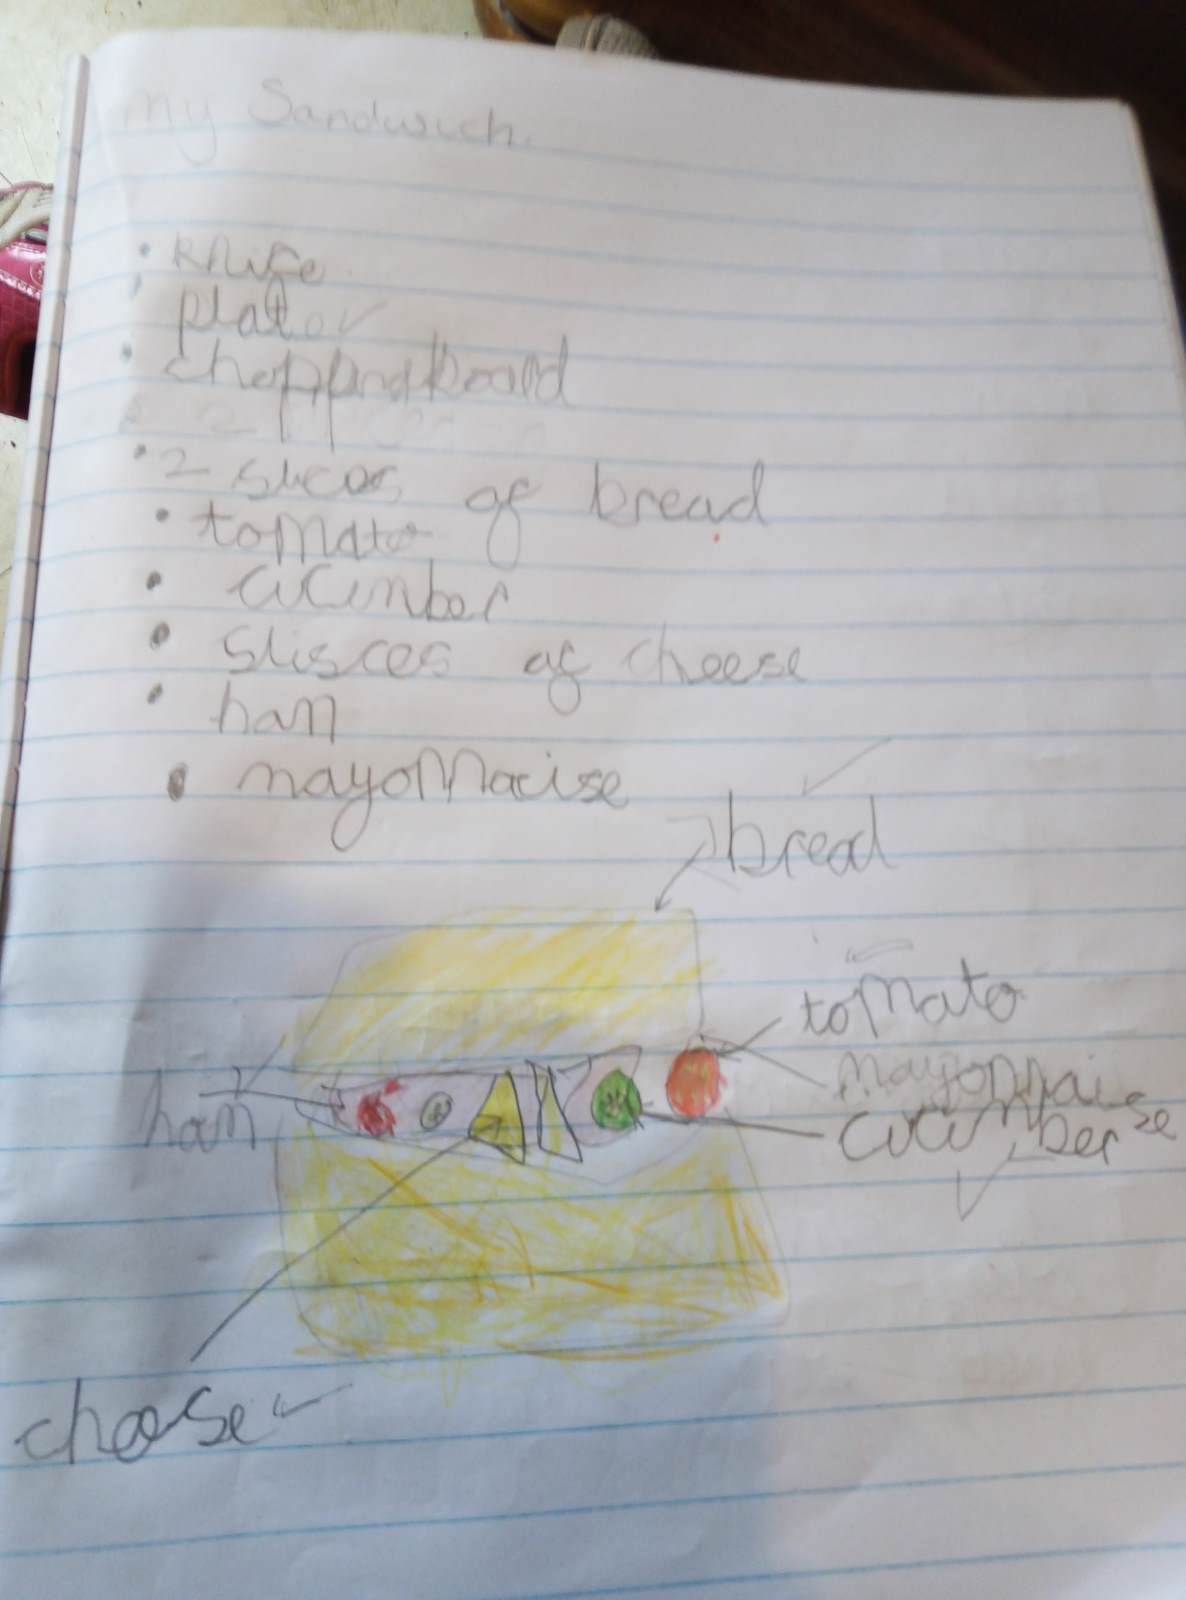 my Sandwich.
• knife
• plate
• choppingboard
• 2 slices of bread
• tomato
• cucumber
• slisces of cheese
• ham
• mayonnacise
bread
tomato
mayonnaise
cucumber
ham
cheese